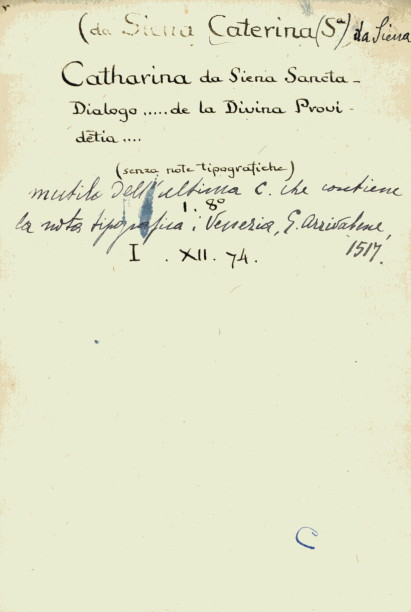 (da Siena Caterina (Sª) da Siena
Catharina da Siena Sancta_
Dialogo ..... de la Divina Provi-
dētia ....
(senza note tipografiche)
mutilo dell'ultima c. che contiene
1 . 8º
la nota tipografica : Venezia, G. Arrivabene,
1517.
I . XII . 74 .
C